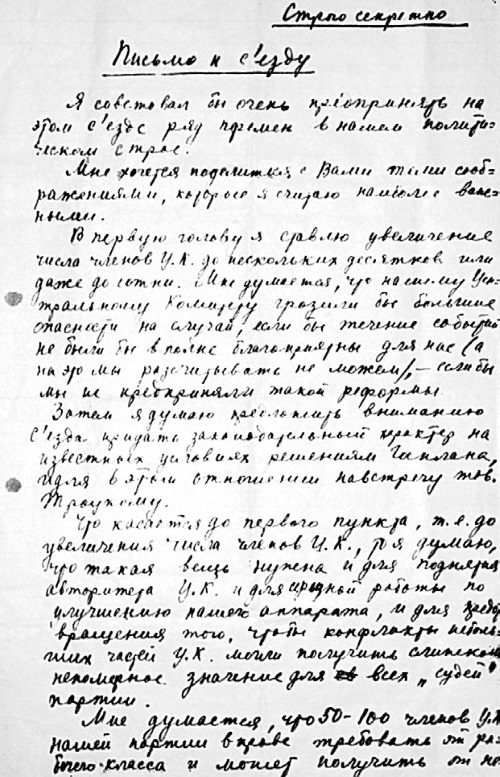 Строго секретно
Письмо к с'езду
Я советовал бы очень предпринять на
этом с'езде ряд перемен в нашем полити-
ческом строе.
Мне хочется поделиться с Вами теми сооб-
ражениями, которые я считаю наиболее важ-
ными.
В первую голову я ставлю увеличение
числа членов Ц.К. до нескольких десятков или
даже до сотни. Мне думается, что нашему Цен-
тральному Комитету грозили бы большие
опасности на случай, если бы течение событий
не были бы вполне благоприятны для нас (а
на это мы рассчитывать не можем), – если бы
мы не предприняли такой реформы.
Затем я думаю предложить вниманию
с'езда придать законодательный характер на
известных условиях решениям Госплана,
идя в этом отношении навстречу тов.
Троцкому.
Что касается до первого пункта, т.е. до
увеличения числа членов Ц.К., то я думаю,
что такая вещь нужна и для поднятия
авторитета Ц.К. и для серьезной работы по
улучшению нашего аппарата, и для предот-
вращения того, чтобы конфликты неболь-
ших частей Ц.К. могли получить слишком
непомерное значение для всех „судеб"
партии.
Мне думается, что 50-100 членов Ц.К.
наша партия вправе требовать от ра-
бочего класса и может получить от не